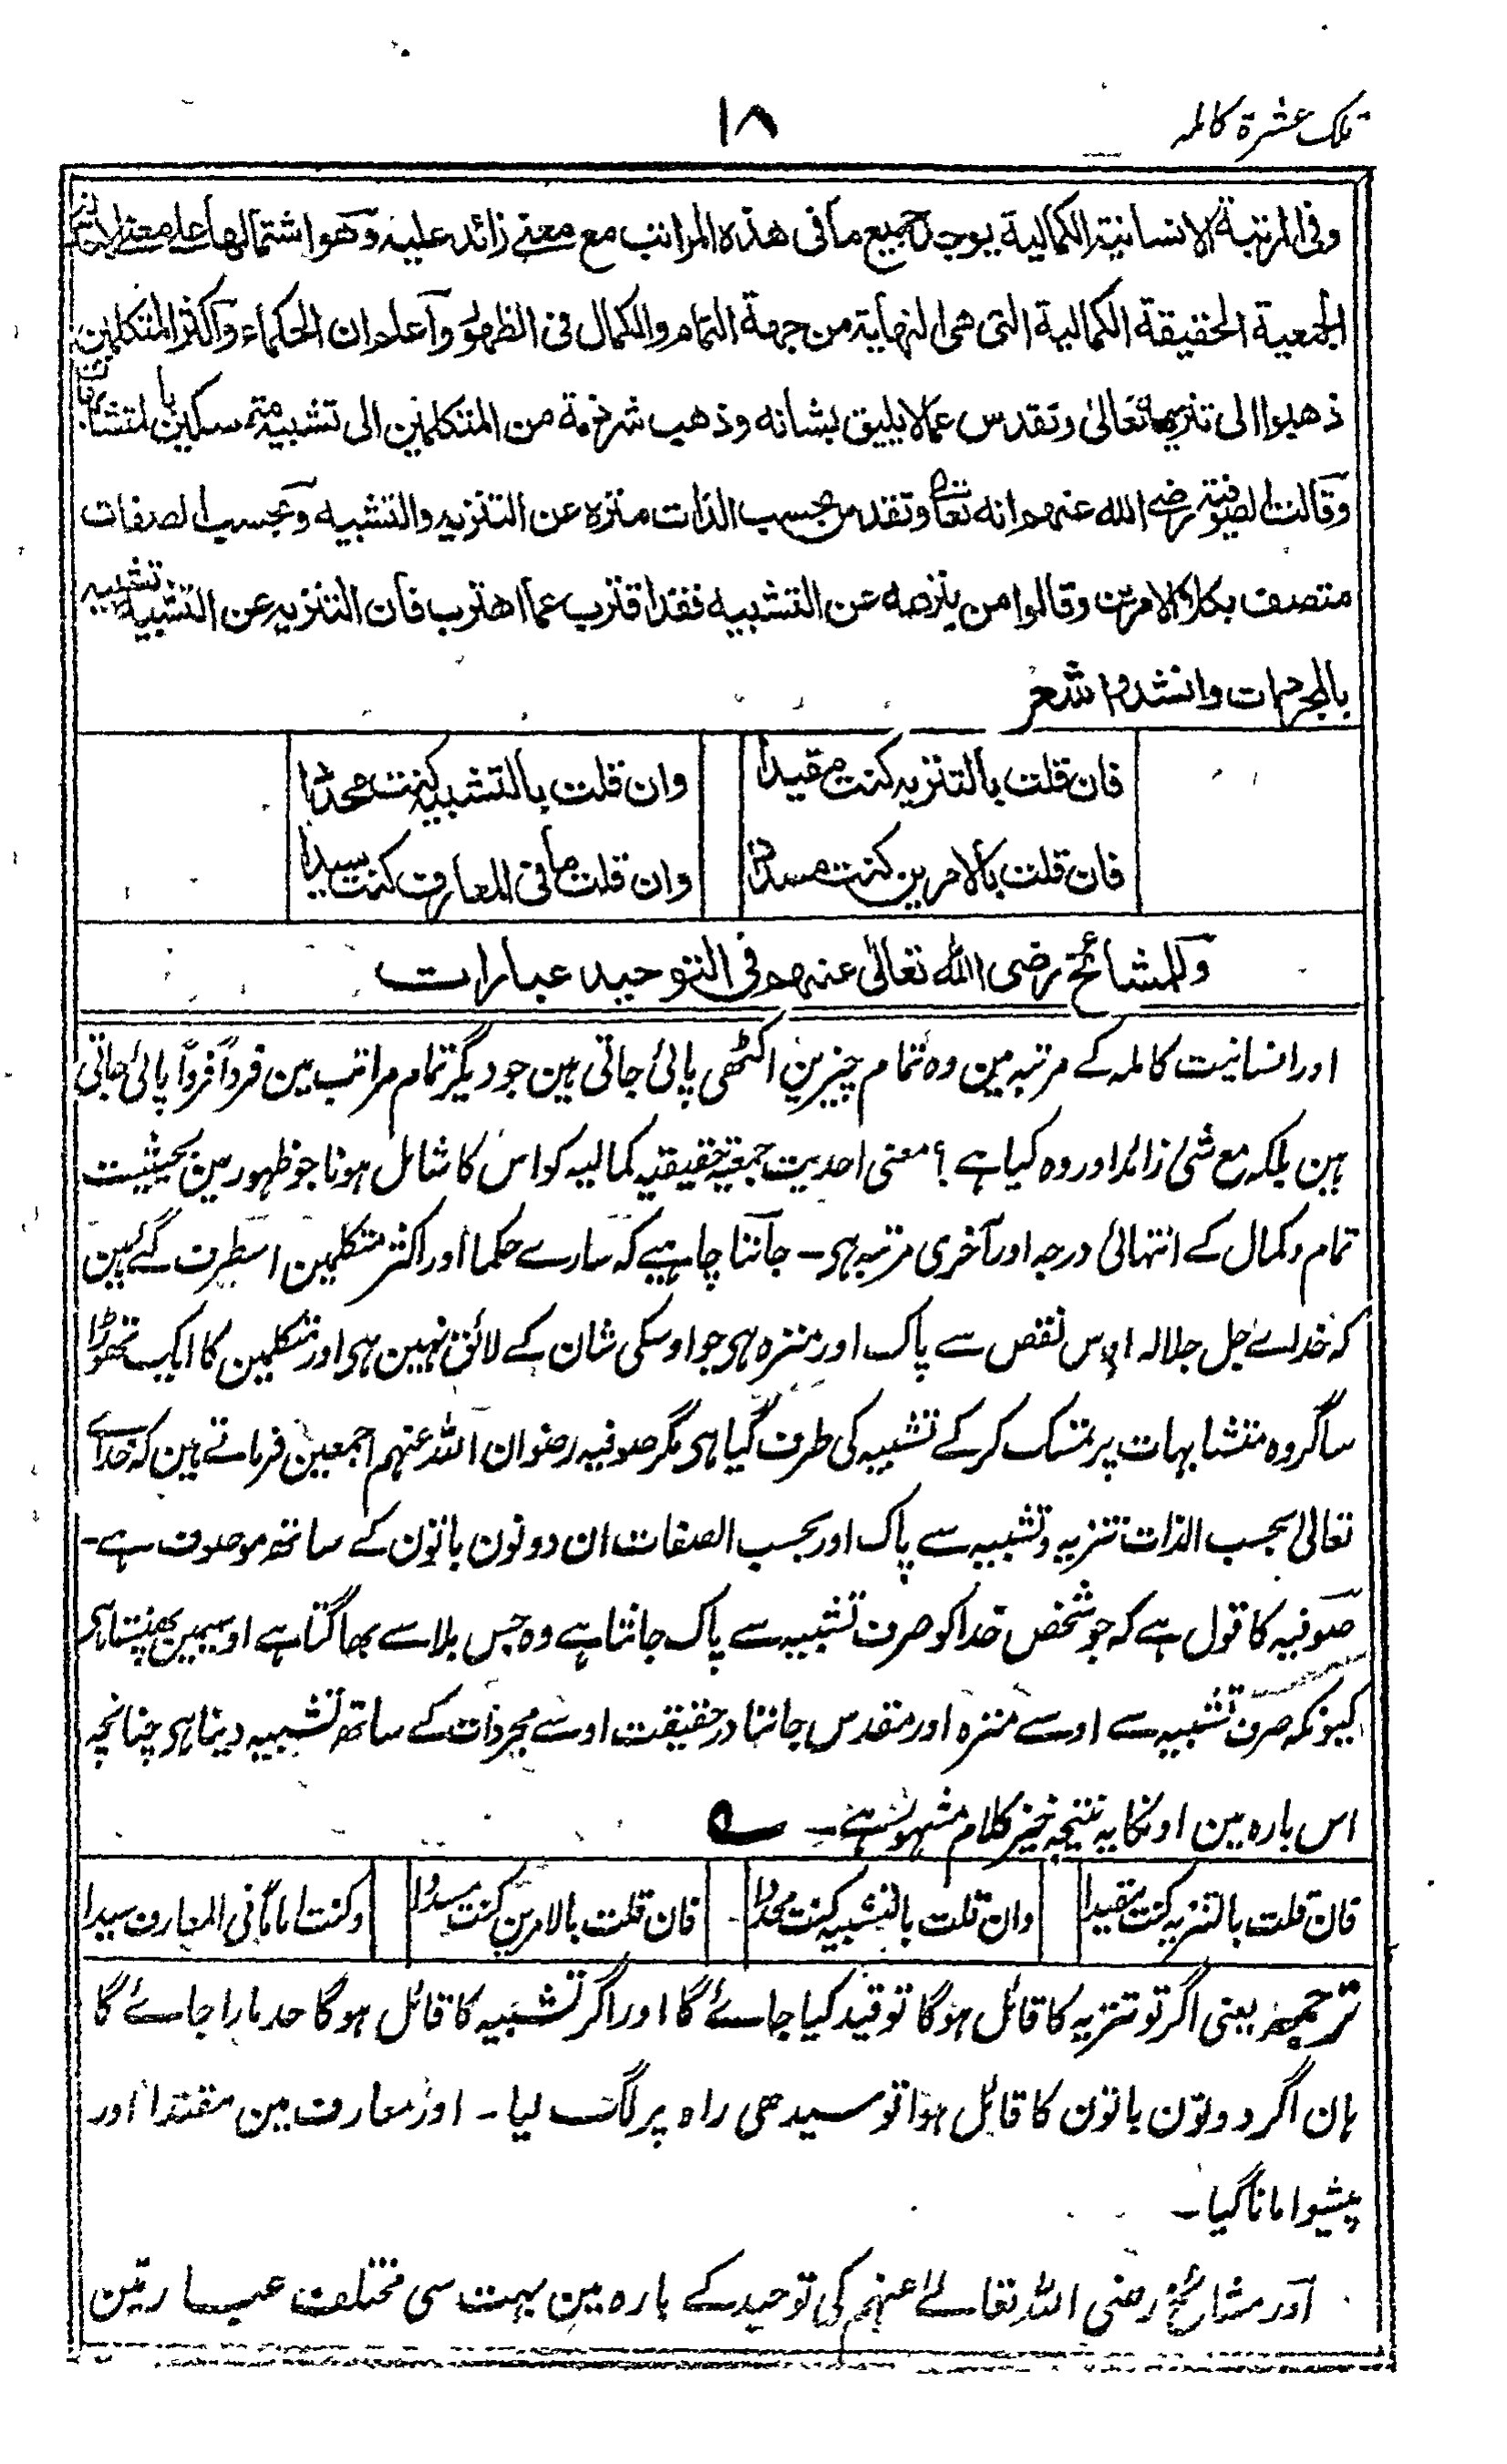 تلک عشرة کاملہ
۱۸
وفی المرتبة الانسانیة الکمالیة یوجد جمیع مافی هذه المراتب مع معنے زائد علیه وهو اشتمالها علے معنے الاحدیة
الجمعیة الحقیقة الکمالیة التی هی النهایة من جهة التمام والکمال فی الظهور واعلم ان الحکماء واکثر المتکلمین
ذهبوا الی تنزیهه تعالیٰ وتقدس عما لا یلیق بشانه وذهب شرذمة من المتکلمین الی تشبیه متمسکین بالمتشابهات
وقالت الصوفیة رضی الله عنهم انه تعالی وتقدس بحسب الذات منزه عن التنزیه والتشبیه وبحسب الصفات
متصف بکلا الامرین وقالوا من ینزهه عن التشبیه فقد اقترب عما اهترب فان التنزیه عن التشبیه تشبیه
بالمجردات وانشدوا شعر
فان قلت بالتنزیه کنت مقیدا وان قلت بالتشبیه کنت محددا
فان قلت بالامرین کنت مسددا وان قلت ما فی المعارف کنت سیدا
وللمشائخ رضی الله تعالیٰ عنهم فی التوحید عبارات
اور انسانیت کاملہ کے مرتبہ مین وہ تمام چیزین اکٹھی پائی جاتی ہین جو دیگر تمام مراتب مین فرداً فرداً پائی جاتی
ہین بلکہ مع شئ زائد اور وہ کیا ہے ؟ معنی احدیت جمعیۃ حقیقیہ کمالیہ کو اس کا شامل ہونا جو ظہور مین بحیثیت
تمام و کمال کے انتہائی درجہ اور آخری مرتبہ ہی۔ جاننا چاہیے کہ سارے حکما اور اکثر متکلمین اسطرف گئے ہین
کہ خداے جل جلالہ اوس نقص سے پاک اور منزہ ہی جو اوسکی شان کے لائق نہین ہی اور متکلمین کا ایک تھوڑا
سا گروہ متشابہات پر متمسک کر کے تشبیہ کی طرف گیا ہی مگر صوفیہ رضوان اللہ عنہم اجمعین فرماتے ہین کہ خداے
تعالیٰ بحسب الذات تنزیہ و تشبیہ سے پاک اور بحسب الصفات ان دونون باتون کے ساتھ موصوف ہے۔
صوفیہ کا قول ہے کہ جو شخص خدا کو صرف تشبیہ سے پاک جانتا ہے وہ جس بلا سے بھاگتا ہے اوسیمین پھنستا ہی
کیونکہ صرف تشبیہ سے اوسے منزہ اور مقدس جاننا درحقیقت اوسے مجردات کے ساتھ تشبیہ دینا ہی چنانچہ
اس بارہ مین اونکا یہ نتیجہ خیز کلام مشہور ہے۔ ؎
فان قلت بالتنزیہ کنت مقیدا وان قلت بالتشبیہ کنت محددا فان قلت بالامرین کنت مسددا وکنت اماماً فی المعارف سیدا
ترجمہ یعنی اگر تو تنزیہ کا قائل ہوگا تو قید کیا جائے گا اور اگر تشبیہ کا قائل ہوگا حد مارا جائے گا
ہان اگر دونون باتون کا قائل ہوا تو سیدھی راہ پر لگ لیا۔ اور معارف مین مقتدا اور
پیشوا مانا گیا۔
اور مشائخ رضی اللہ تعالےٰ عنہم کی توحید کے بارہ مین بہت سی مختلف عبارتین